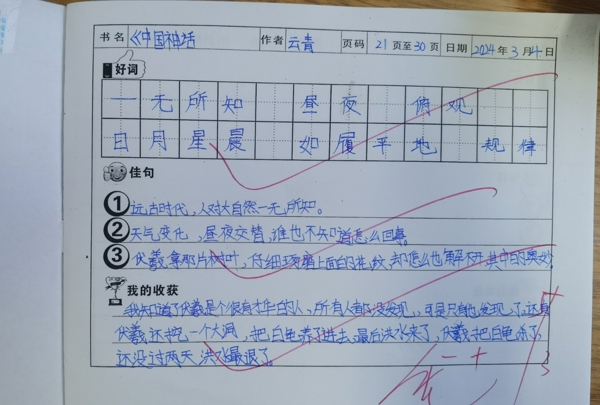 书名 《中国神话 作者 云青 页码 21页至30页 日期 2024年3月4日
好词
一无所知 昼夜 俯观
日月星晨 如履平地 规律
佳句
① 远古时代，人对大自然一无所知。
② 天气变化，昼夜交替，谁也不知道怎么回事。
③ 伏羲拿那片树叶，仔细琢磨上面的花纹，却怎么也解不开其中的奥妙
我的收获
我知道了伏羲是个很有才华的人，所有人都没发现，可是只有他发现了，还有
伏羲还挖一个大洞，把白龟养了进去，最后洪水来了，伏羲把白龟杀了，
还没过两天，洪水最退了。